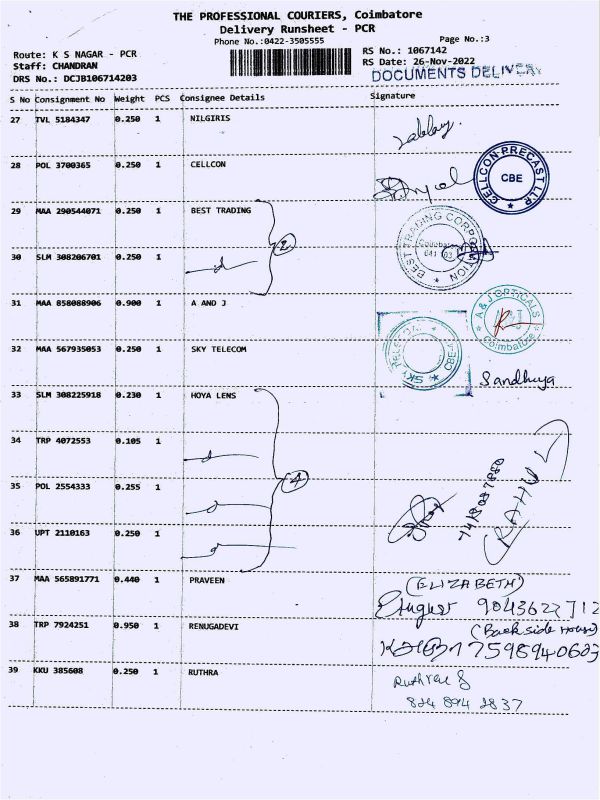 THE PROFESSIONAL COURIERS, Coimbatore
Delivery Runsheet - PCR
Phone No.:0422-3505555
Page No.:3
Route: K S NAGAR - PCR
RS No.: 1067142
Staff: CHANDRAN
RS Date: 26-Nov-2022
DRS No.: DCJB106714203
DOCUMENTS DELIVERY
S No Consignment No Weight PCS Consignee Details Signature
27 TVL 5184347 0.250 1 NILGIRIS
28 POL 3700365 0.250 1 CELLCON
CELLCON PRECAST LLP
CBE
29 MAA 290544071 0.250 1 BEST TRADING
2
BEST TRADING CORPORATION
Coimbatore
641 03
30 SLM 308206701 0.250 1
31 MAA 858088906 0.900 1 A AND J
A & J OPTICALS
Coimbatore
32 MAA 567935053 0.250 1 SKY TELECOM
SKY TELECOM
CBE
Sandhya
33 SLM 308225918 0.230 1 HOYA LENS
34 TRP 4072553 0.105 1
4
35 POL 2554333 0.255 1
RAHUL
36 UPT 2110163 0.250 1
37 MAA 565891771 0.440 1 PRAVEEN
(ELIZABETH)
38 TRP 7924251 0.950 1 RENUGADEVI
(Back side House)
7598940683
39 KKU 385608 0.250 1 RUTHRA